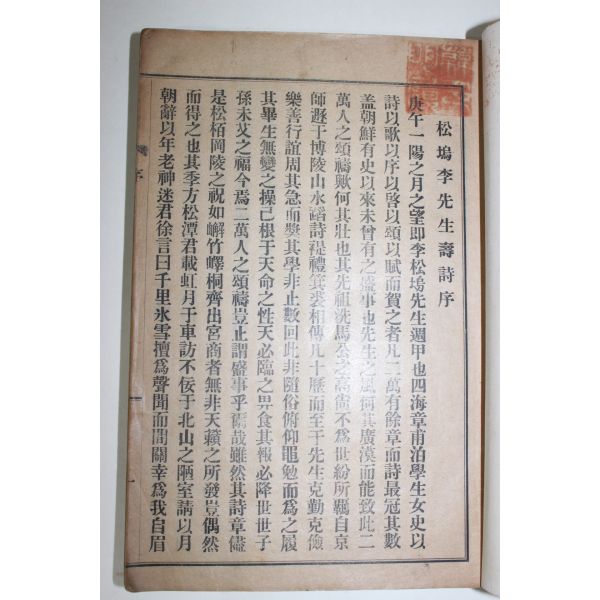 松塢李先生壽詩序
庚午一陽之月之望即李松塢先生週甲也四海章甫泊學生女史以
詩以歌以序以啓以頌以賦而賀之者凡二萬有餘章而詩最冠其數
盖朝鮮有史以來未曾有之盛事也先生之風何其廣漠而能致此二
萬人之頌禱歟何其壯也其先祖洗馬公之高尙不爲世紛所羈自京
師遯于博陵山水謟詩禔禮箕裘相傳凡十歷而至于先生克勤克儉
樂善行誼周其急而奬其學非止數回此非隨俗俯仰黽勉而爲之履
其畢生無變之操己根于天命之性天必臨之畀食其報必降世世子
孫未艾之福今焉二萬人之頌禱豈止謂盛事乎哉雖然其詩章儘
是松栢岡陵之祝如嶰竹嶧桐齊出宮商者無非天籟之所發豈偶然
而得之也其季方松潭君載虹月于車訪不佞于北山之陋室請以月
朝辭以年老神迷君徐言曰千里氷雪擅爲聲聞而間關幸爲我自眉
序